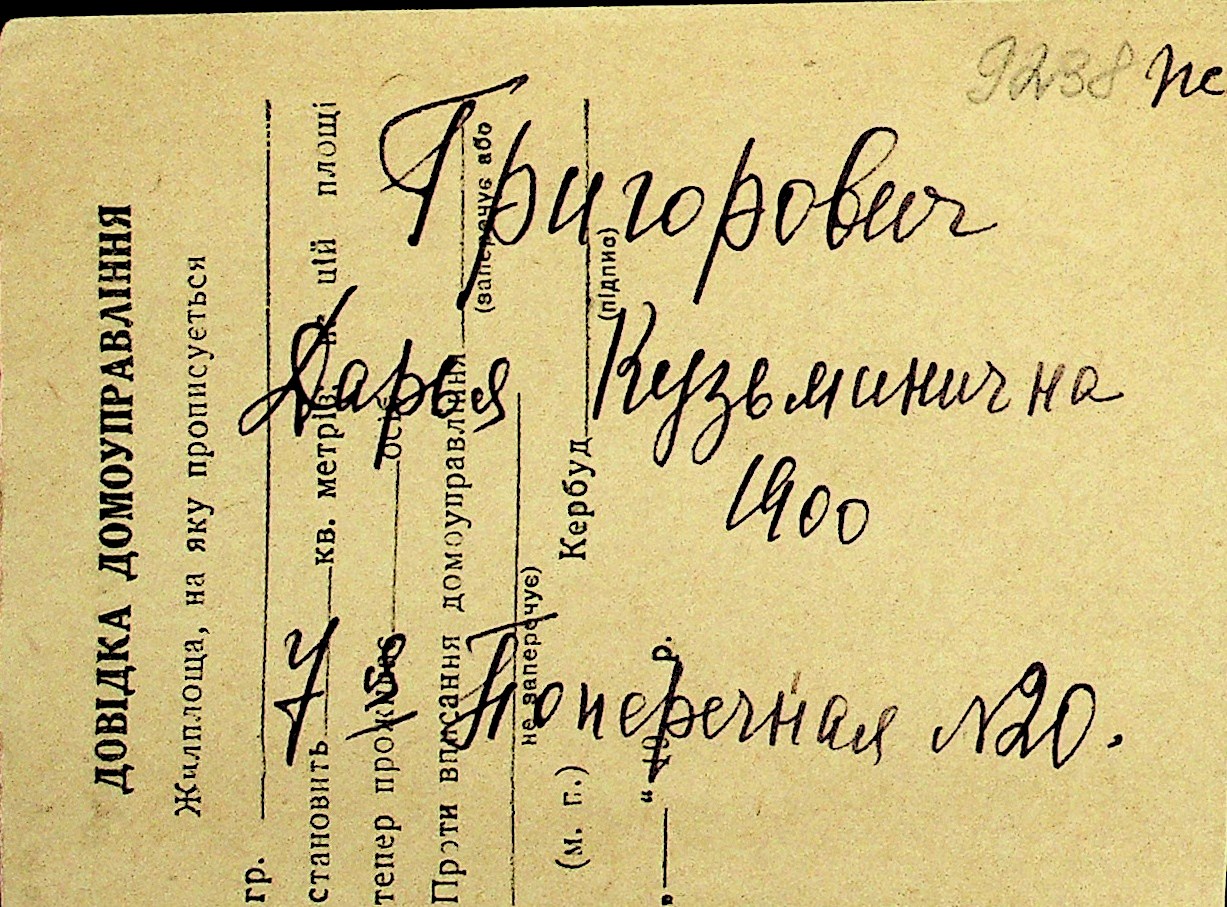 9238
Григорович
Дарья Кузьминична
1900
7 Поперечная №20.
ДОВІДКА ДОМОУПРАВЛІННЯ
Жилплоща, на яку прописується
гр.
становить кв. метрів, на цій площі
тепер проживає осіб
Проти вписання домоуправління
(заперечує або
не заперечує)
Кербуд
(підпис)
(м. п.)
„ “ 19 р.